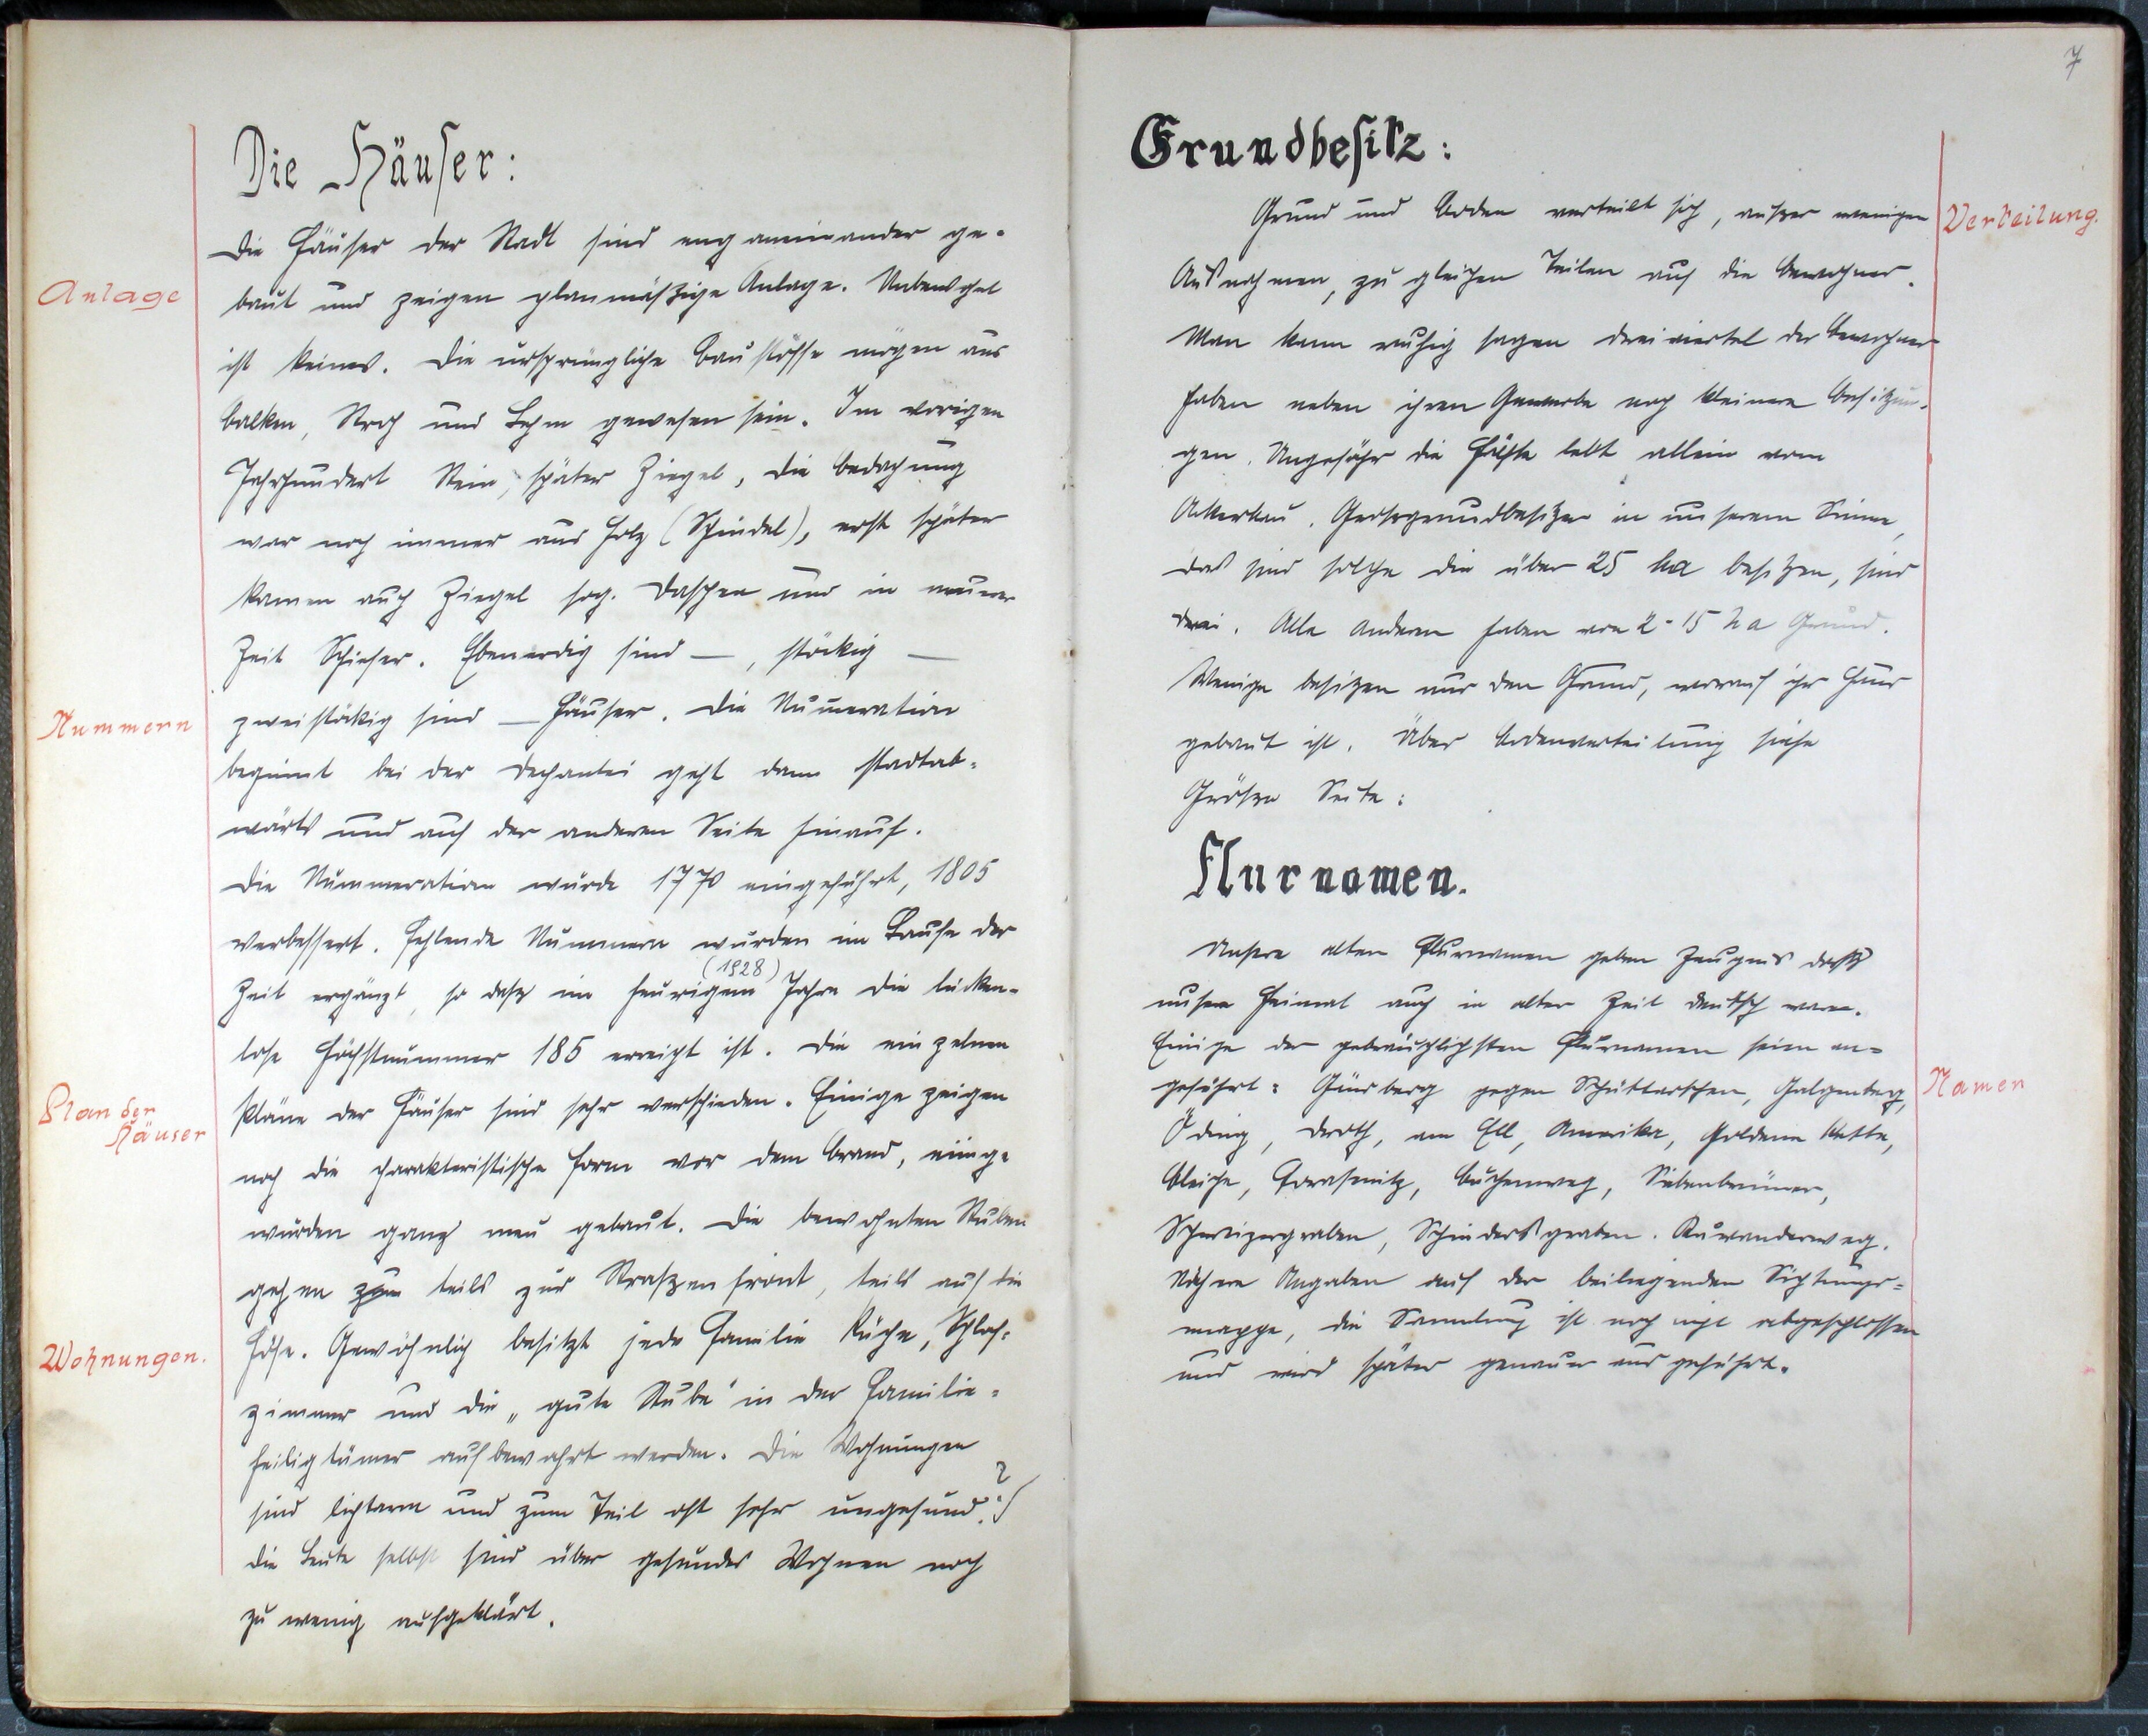 Die Häuser:
Die Häuser der Stadt sind eng aneinander ge-
Anlage
baut und zeigen planmäßige Anlage. Unbewohnt
ist keines. Die ursprüngliche Baustoffe mögen aus
Balken, Stroh und Lehm gewesen sein. Im vorigen
Jahrhundert Stein, später Ziegel, die Bedachung
war noch immer aus Holz (Schindel), erst später
kamen auch Ziegel sog. Daschen und in neuerer
Zeit Schiefer. Ebenerdig sind —, stöckig —
Nummern
zweistöckig sind — Häuser. Die Numeration
beginnt bei der Dechantei geht dann stadtab-
wärts und auf der anderen Seite hinauf.
Die Nummeration wurde 1770 eingeführt, 1805
verbessert. Fehlende Nummern wurden im Laufe der
(1928)
Zeit ergänzt, so dasz im heurigem Jahre die lücken-
lose Höchstnummer 185 erreicht ist. Die einzelnen
Plan der
Häuser
Pläne der Häuser sind sehr verschieden. Einige zeigen
noch die charakteristische Form vor dem Brand, einige
wurden ganz neu gebaut. Die bewohnten Stuben
gehen zum teils zur Straszenfront, teils auf die
Wohnungen.
Höfe. Gewöhnlich besitzt jede Familie Küche, Schlaf-
zimmer und die „gute Stube" in der Familie-
heiligtümer aufbewahrt werden. Die Wohnungen
sind lichtarm und zum Teil oft sehr ungesund. ?
Die Leute selbst sind über gesundes Wohnen noch
zu wenig aufgeklärt.
7
Grundbesitz:
Grund und Boden verteilt sich, auszer wenigen
Verteilung.
Ausnahmen, zu gleichen Teilen auf die Bewohner.
Man kann ruhig sagen dreiviertel der Bewohner
haben neben ihren Gewerbe noch kleinere Besitzun-
gen. Ungefähr die Hälfte lebt allein vom
Ackerbau. Groszgrundbesitzer in unserem Sinne,
das sind solche die über 25 ha besitzen, sind
drei. Alle anderen haben von 2-15 ha Grund.
Wenige besitzen nur den Grund, worauf ihr Haus
gebaut ist. Über Bodenverteilung siehe
Grösze Seite:
Flurnamen.
Unsere alten Flurnamen geben Zeugnis dasz
unsere Heimat auch in alter Zeit deutsch war.
Einige der gebräuchlichsten Flurnamen seien an-
geführt: Günsberg gegen Schüttarschen, Galgenberg,
Namen
Öding, am Ell, Amerika, Goldene Kette,
Bleiche, Buchenweg, Siebenbrünner,
Schweizergraben, Schindersgraben.
Nähere Angaben auf der beiliegenden Sichtungs-
mappe, die Sammlung ist noch nicht abgeschlossen
und wird später genauer ausgeführt.